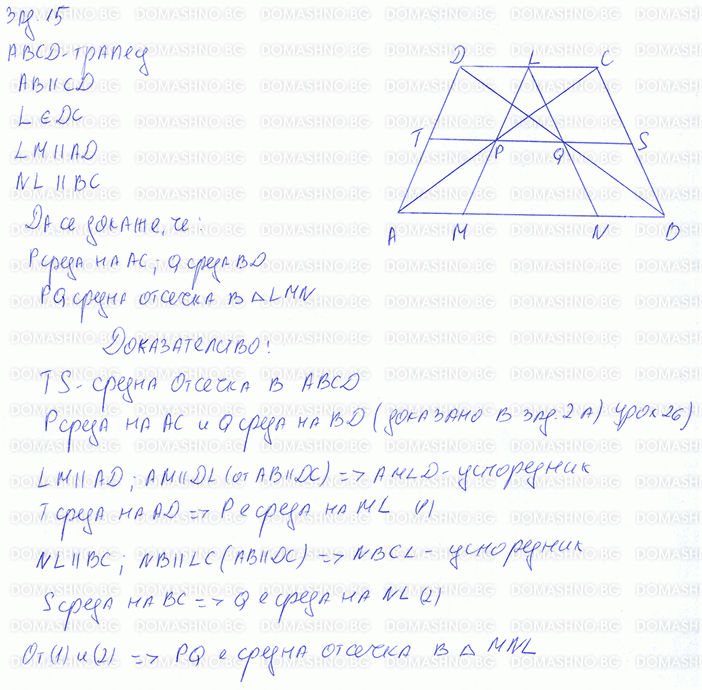 Зад. 15
ABCD-трапец
AB II CD
L ∈ DC
LM II AD
NL II BC
Да се докаже, че:
P среда на AC; Q среда BD
PQ средна отсечка в △ LMN
D L C
T P Q S
A M N B
Доказателство:
TS - средна отсечка в ABCD
P среда на AC и Q среда на BD (доказано в зад. 2 а) урок 26)
LM II AD; AM II DL (от AB II DC) => AMLD - успоредник
T среда на AD => P е среда на ML (1)
NL II BC; NB II LC (AB II DC) => NBCL - успоредник
S среда на BC => Q е среда на NL (2)
От (1) и (2) => PQ е средна отсечка в △ MNL
DOMASHNO.BG